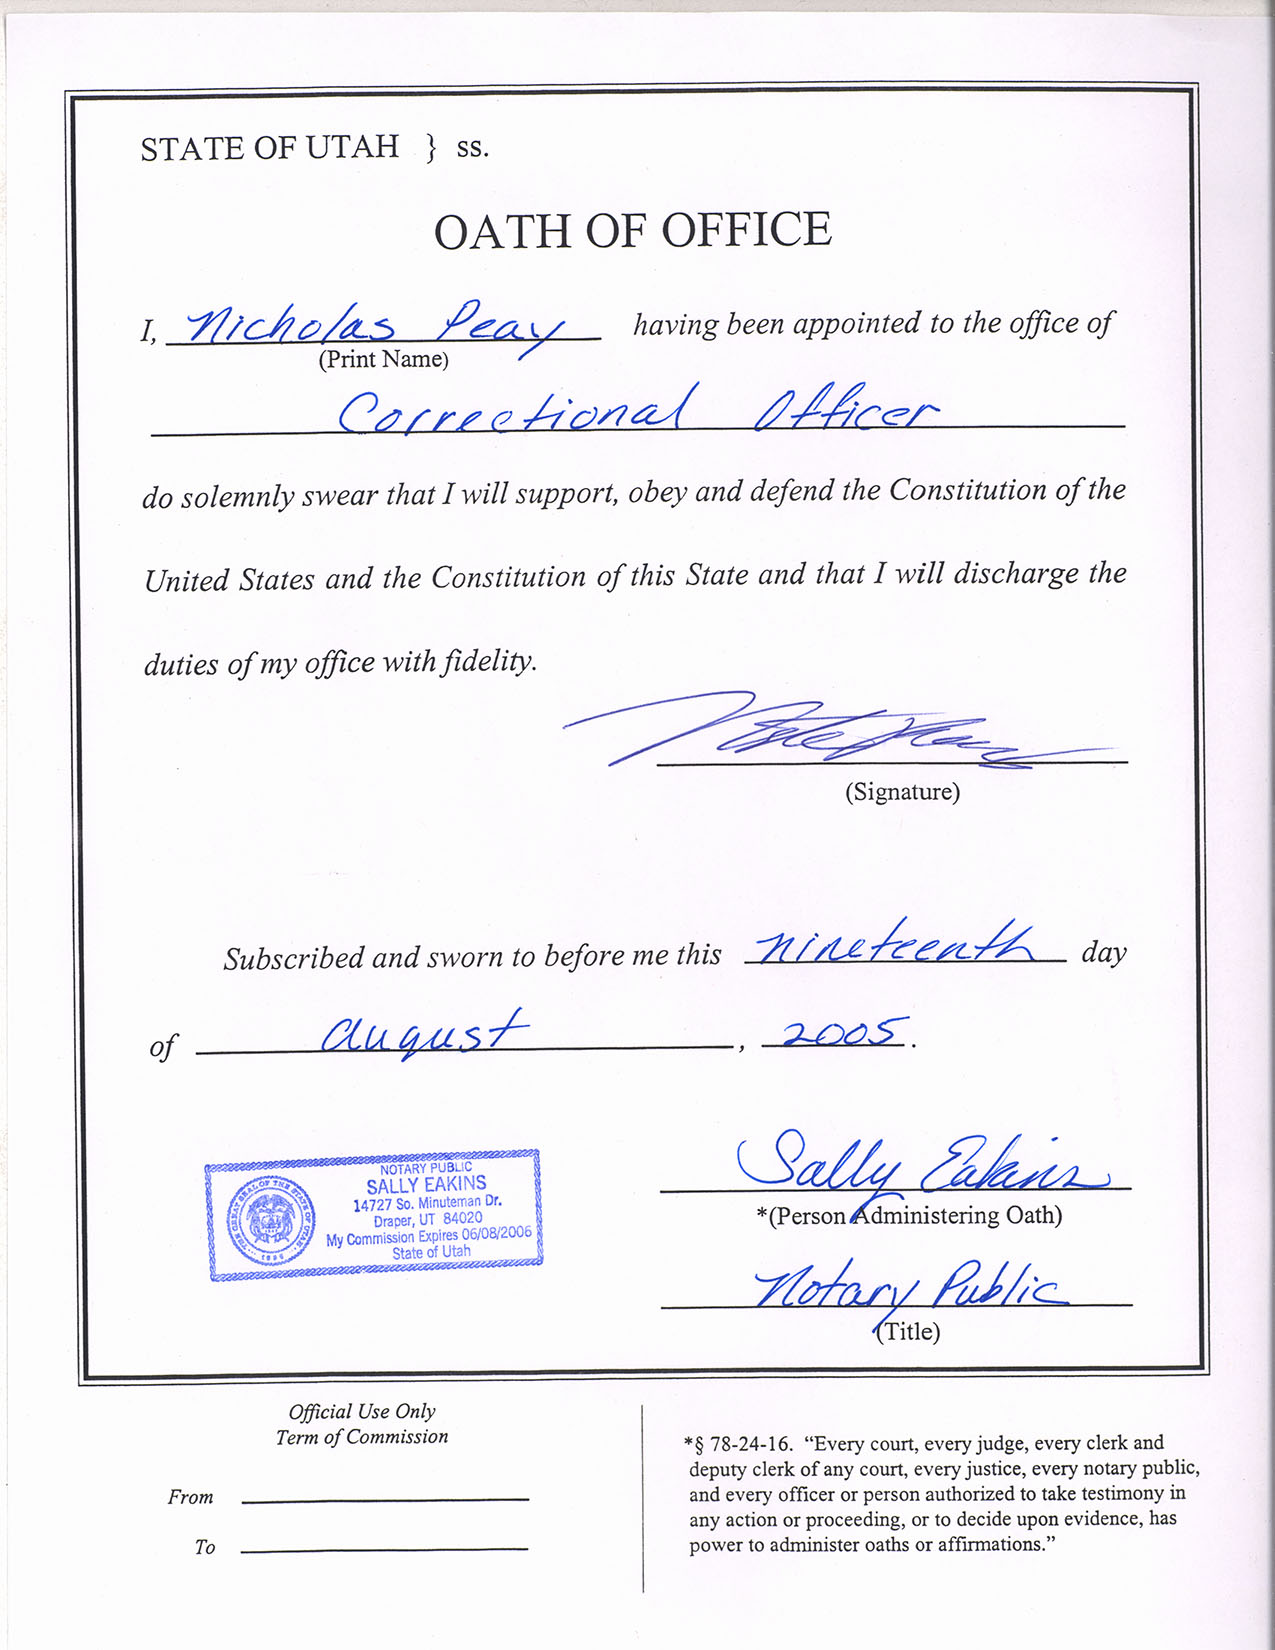 STATE OF UTAH } ss.
OATH OF OFFICE
I, Nicholas Peay having been appointed to the office of
(Print Name)
Correctional Officer
do solemnly swear that I will support, obey and defend the Constitution of the
United States and the Constitution of this State and that I will discharge the
duties of my office with fidelity.
(Signature)
Subscribed and sworn to before me this nineteenth day
of august, 2005.
Sally Eakins
*(Person Administering Oath)
Notary Public
(Title)
NOTARY PUBLIC
SALLY EAKINS
14727 So. Minuteman Dr.
Draper, UT 84020
My Commission Expires 06/08/2006
State of Utah
THE GREAT SEAL OF THE STATE OF UTAH
1896
Official Use Only
Term of Commission
From
To
*§ 78-24-16. “Every court, every judge, every clerk and
deputy clerk of any court, every justice, every notary public,
and every officer or person authorized to take testimony in
any action or proceeding, or to decide upon evidence, has
power to administer oaths or affirmations.”